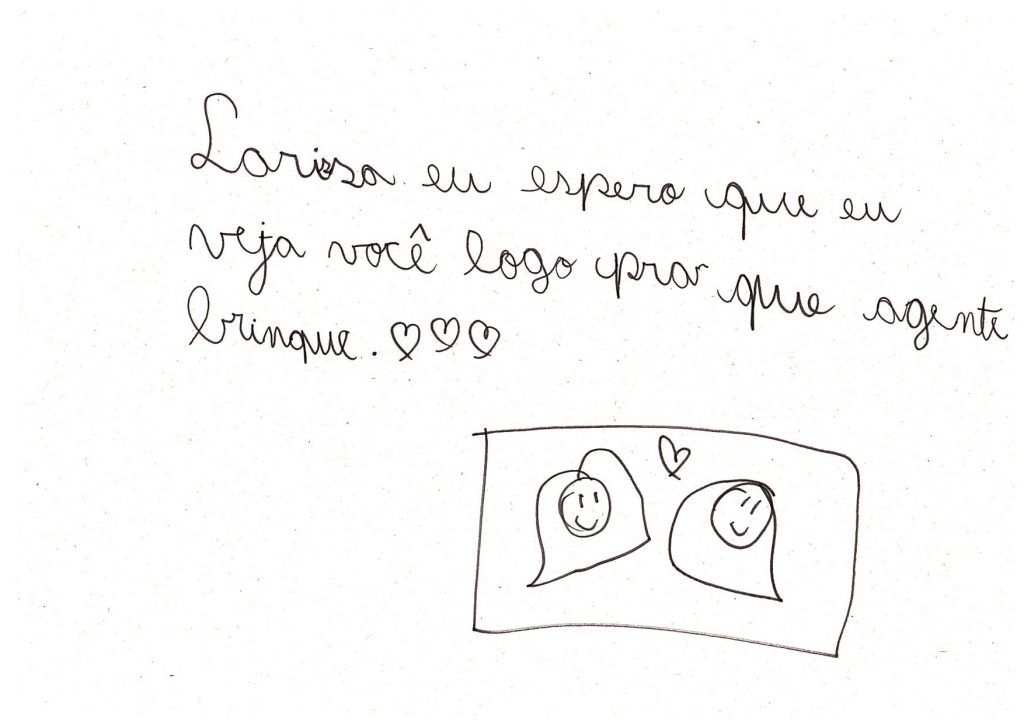 Larissa eu espero que eu
veja você logo pra que agente
brinque. ♡♡♡